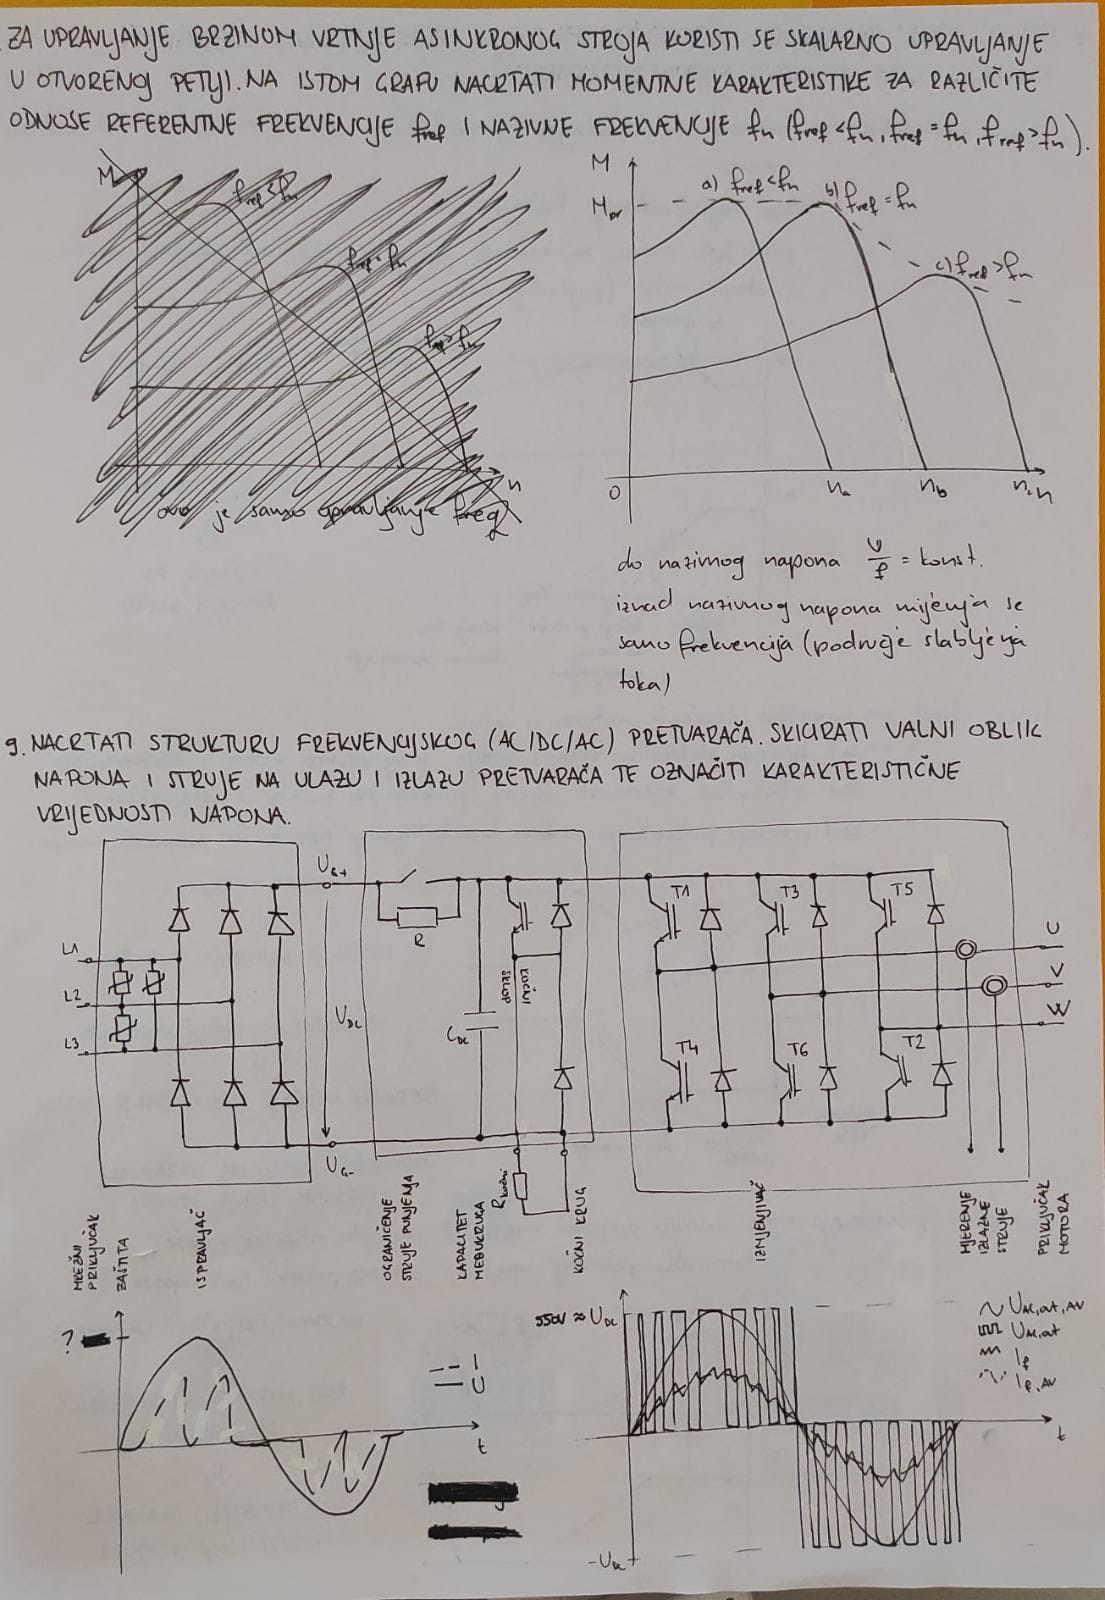 ZA UPRAVLJANJE BRZINOM VRTNJE ASINKRONOG STROJA KORISTI SE SKALARNO UPRAVLJANJE
U OTVORENOJ PETLJI. NA ISTOM GRAFU NACRTATI MOMENTNE KARAKTERISTIKE ZA RAZLIČITE
ODNOSE REFERENTNE FREKVENCIJE fref I NAZIVNE FREKVENCIJE fn (fref < fn, fref = fn, fref > fn).
M
fref < fn
fref = fn
fref > fn
n
ovo je samo upravljanje freq
M
Mpr
a) fref < fn
b) fref = fn
c) fref > fn
0
na
nb
nc
n
do nazivnog napona U/f = konst.
iznad nazivnog napona mijenja se
samo frekvencija (područje slabljenja
toka)
9. NACRTATI STRUKTURU FREKVENCIJSKOG (AC/DC/AC) PRETVARAČA. SKICIRATI VALNI OBLIK
NAPONA I STRUJE NA ULAZU I IZLAZU PRETVARAČA TE OZNAČITI KARAKTERISTIČNE
VRIJEDNOSTI NAPONA.
UG+
T1
T3
T5
R
L1
U
KOČNI
SKLOP
L2
V
UDC
CDC
W
L3
T4
T6
T2
UG-
Rkočni
MREŽNI
PRIKLJUČAK
ZAŠTITA
ISPRAVLJAČ
OGRANIČENJE
STRUJE PUNJENJA
KAPACITET
MEĐUKRUGA
KOČNI KRUG
IZMJENJIVAČ
MJERENJE
IZLAZNE
STRUJE
PRIKLJUČAK
MOTORA
?
I
U
t
550V ≈ UDC
UAC,out,AV
UAC,out
If
If,AV
t
-UDC